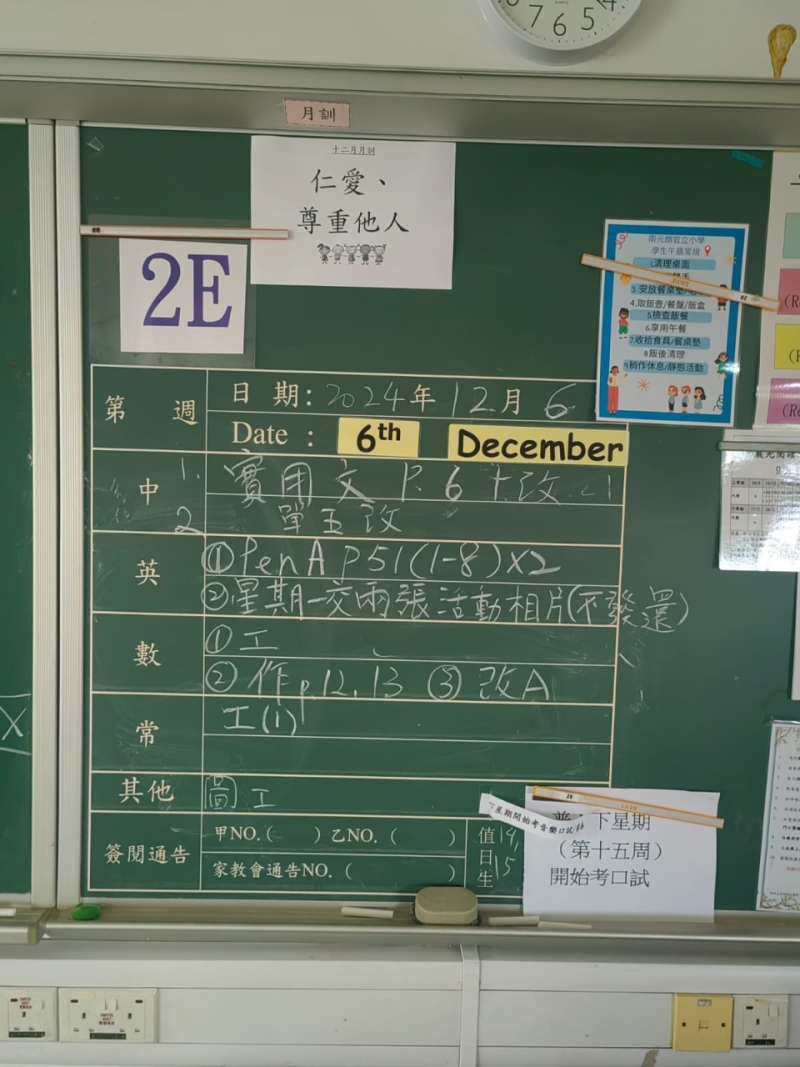 7 6 5 4
月訓
十二月月訓
仁愛、
尊重他人
2E
南元朗官立小學
學生午膳常規
1.清理桌面
3.安放餐桌墊
4.取飯壺/餐盤/飯盒
5.檢查飯餐
6.享用午餐
7.收拾食具/餐桌墊
8.飯後清理
9.稍作休息/靜態活動
第 週
日期：2024年12月6
Date : 6th December
中 1. 實用文 P.6 十改
2. 單五改
英 ①Pen A P51(1-8)×2
②星期一交兩張活動相片(不發還)
數 ①工
②作p.12,13 ③改A
常 工(1)
其他 圖工
簽閱通告 甲NO.( ) 乙NO.( )
家教會通告NO.( )
值日生 14, 15
下星期開始考音樂口試
下星期
（第十五周）
開始考口試
X